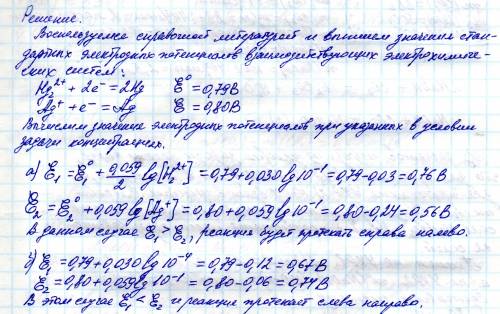 Решение.
Воспользуемся справочной литературой и выпишем значения стан-
дартных электродных потенциалов взаимодействующих электрохимиче-
ских систем:
Hg₂²⁺ + 2e⁻ = 2Hg   E° = 0,79В
Ag⁺ + e⁻ = Ag   E = 0,80В
Вычислим значение электродных потенциалов при указанных в условии
задачи концентрациях.
а) E₁ = E₁° + 0,059/2 lg[H₂²⁺] = 0,79 + 0,030 lg 10⁻¹ = 0,79 - 0,03 = 0,76 В
E₂ = E₂° + 0,059 lg[Ag⁺] = 0,80 + 0,059 lg 10⁻¹ = 0,80 - 0,24 = 0,56 В
В данном случае E₁ > E₂, реакция будет протекать справа налево.
б) E₁ = 0,79 + 0,030 lg 10⁻⁴ = 0,79 - 0,12 = 0,67 В
E₂ = 0,80 + 0,059 lg 10⁻¹ = 0,80 - 0,06 = 0,74 В
В этом случае E₁ < E₂ и реакция протекает слева направо.